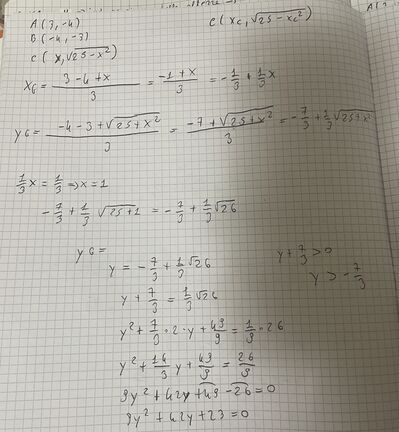 A(3,-4)
C(x_C, √(25-x_C²))
B(-4,-3)
C(x, √(25-x²))
x_G = (3-4+x)/3 = (-1+x)/3 = -1/3 + 1/3 x
y_G = (-4-3+√(25+x²))/3 = (-7+√(25+x²))/3 = -7/3 + 1/3 √(25+x²)
1/3 x = 1/3 ⇒ x = 1
-7/3 + 1/3 √(25+1) = -7/3 + 1/3 √26
y_G =
y = -7/3 + 1/3 √26
y + 7/3 > 0
y + 7/3 = 1/3 √26
y > -7/3
y² + 7/3 · 2 · y + 49/9 = 1/9 · 26
y² + 14/3 y + 49/9 = 26/9
9y² + 42y + 49 - 26 = 0
9y² + 42y + 23 = 0